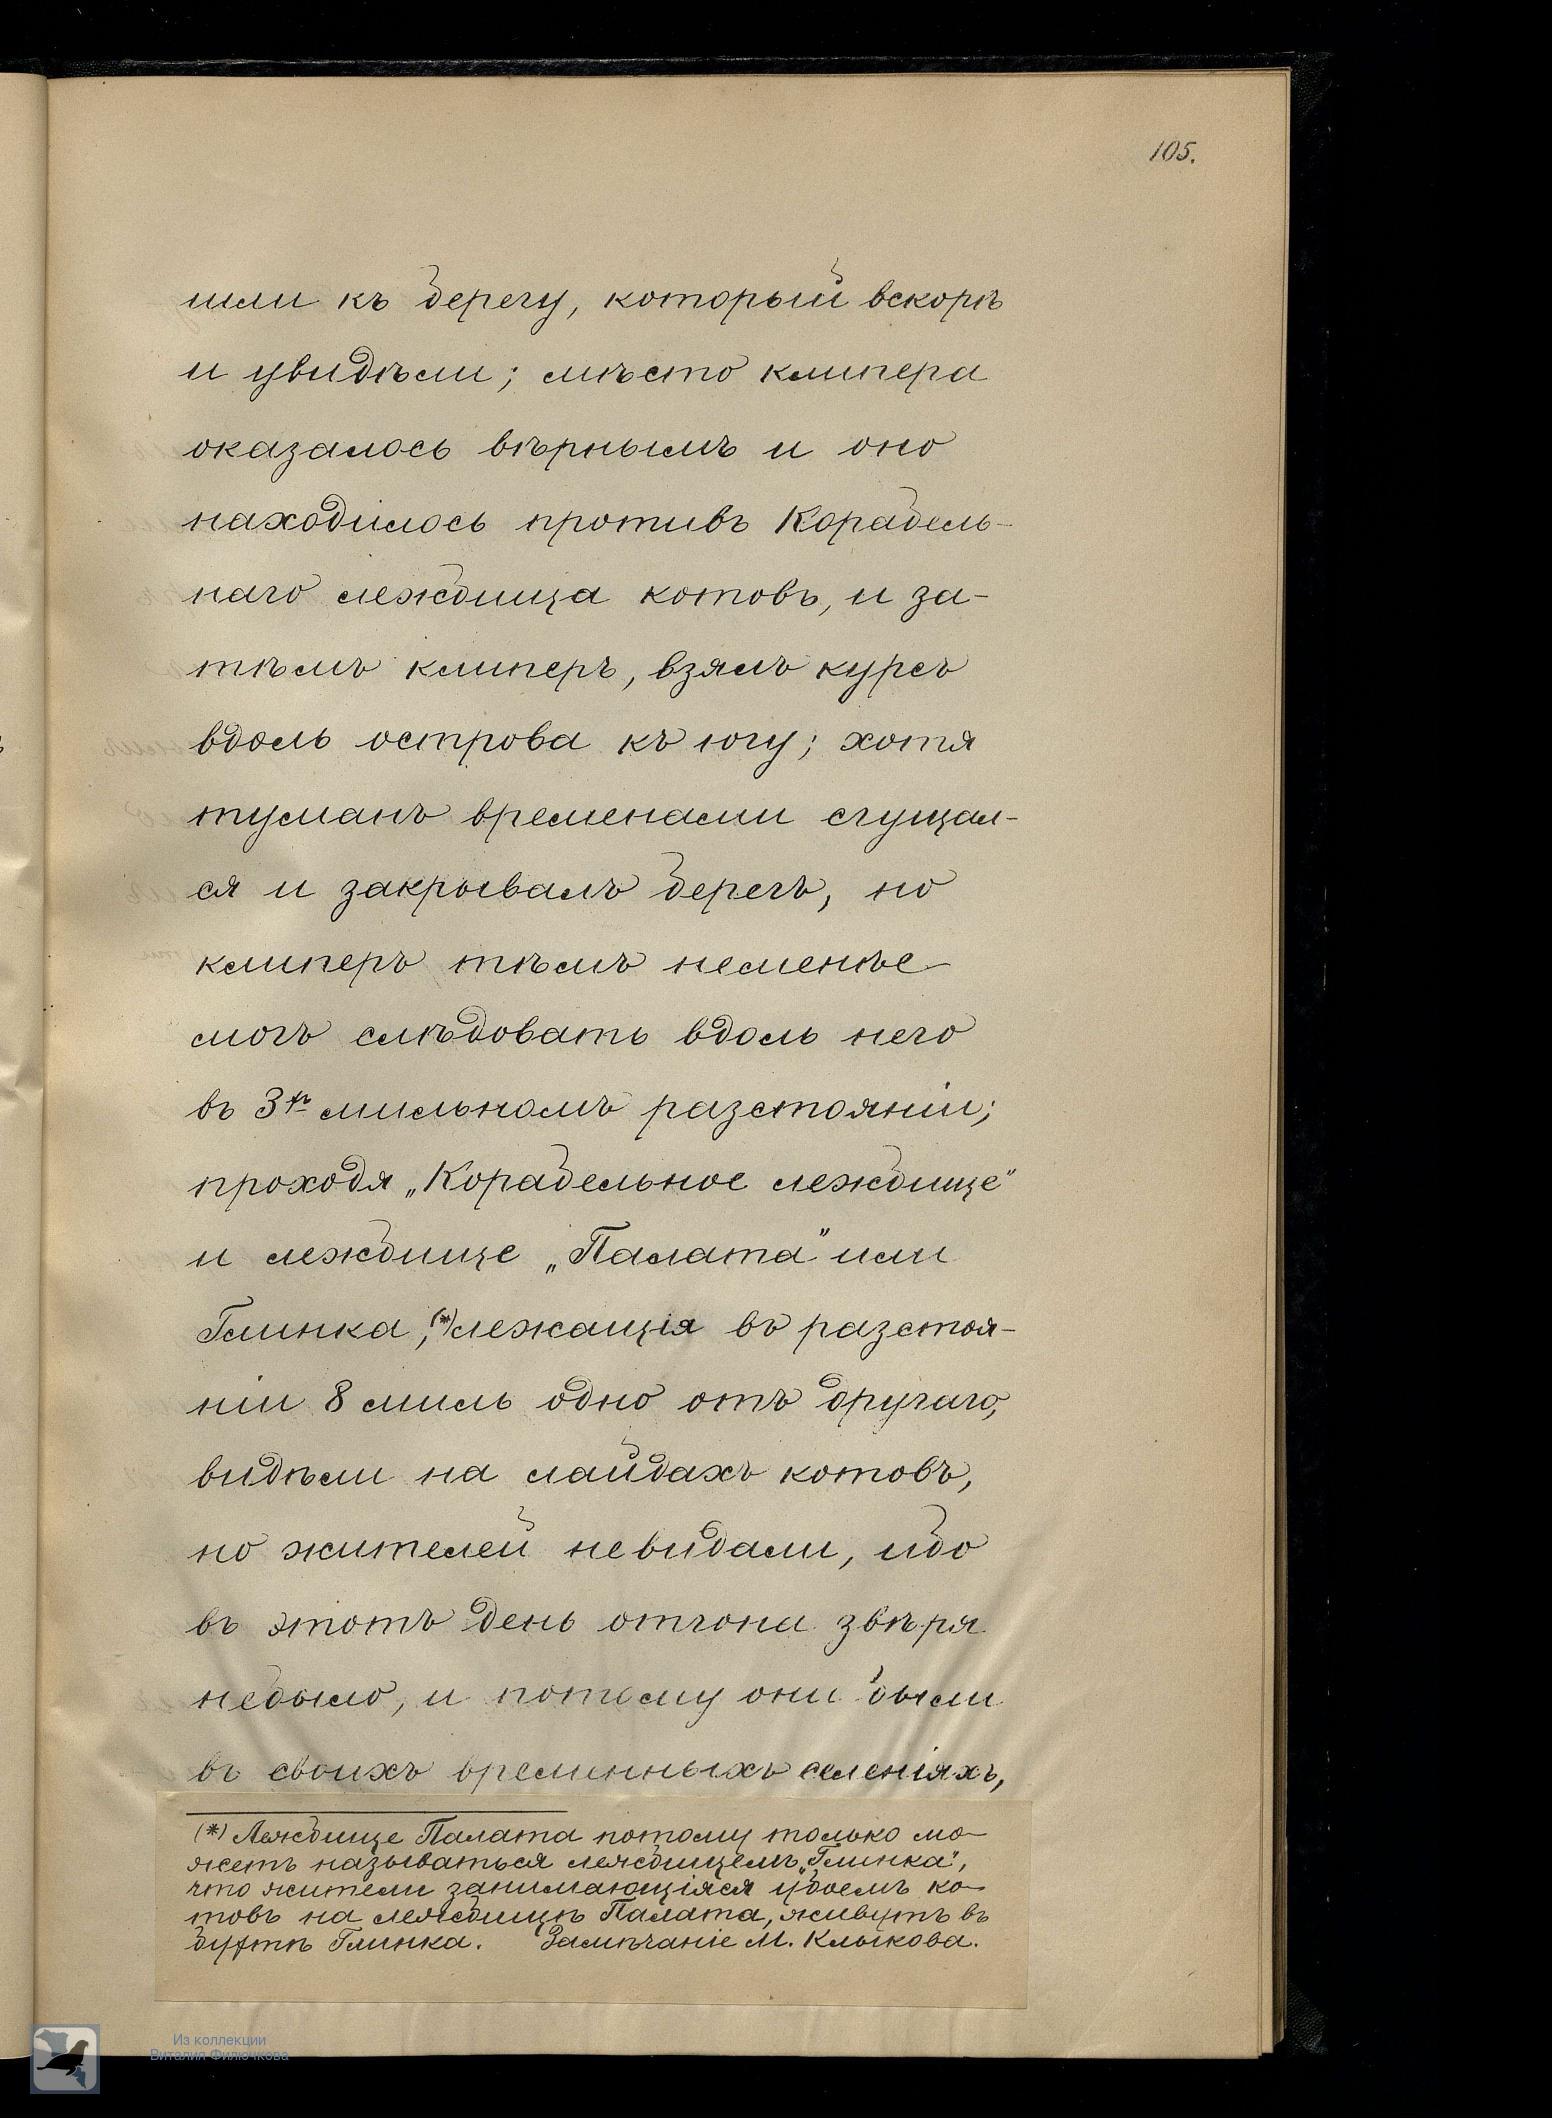 105.
шли къ берегу, который вскорѣ
и увидѣли; мѣсто клипера
оказалось вѣрнымъ и оно
находилось противъ Корабель-
наго лежбища котовъ, и за-
тѣмъ клиперъ, взялъ курсъ
вдоль острова къ югу; хотя
туманъ временами сгущал-
ся и закрывалъ берегъ, но
клиперъ тѣмъ неменѣе
могъ слѣдовать вдоль него
въ 3хъ мильномъ разстояніи;
проходя „Корабельное лежбище"
и лежбище „Палата" или
Глинка,(*) лежащія въ разстоя-
ніи 8 миль одно отъ другаго,
видѣли на лайдахъ котовъ,
но жителей невидали, ибо
въ этотъ день отгона звѣря
небыло, и потому они были
въ своихъ временныхъ селеніяхъ,
(*) Лежбище Палата потому только мо-
жетъ называться лежбищемъ „Глинка",
что жители занимающіяся убоемъ ко-
товъ на лежбищѣ Палата, живутъ въ
бухтѣ Глинка. Замѣчаніе М. Клыкова.
Из коллекции
Виталия Филючкова